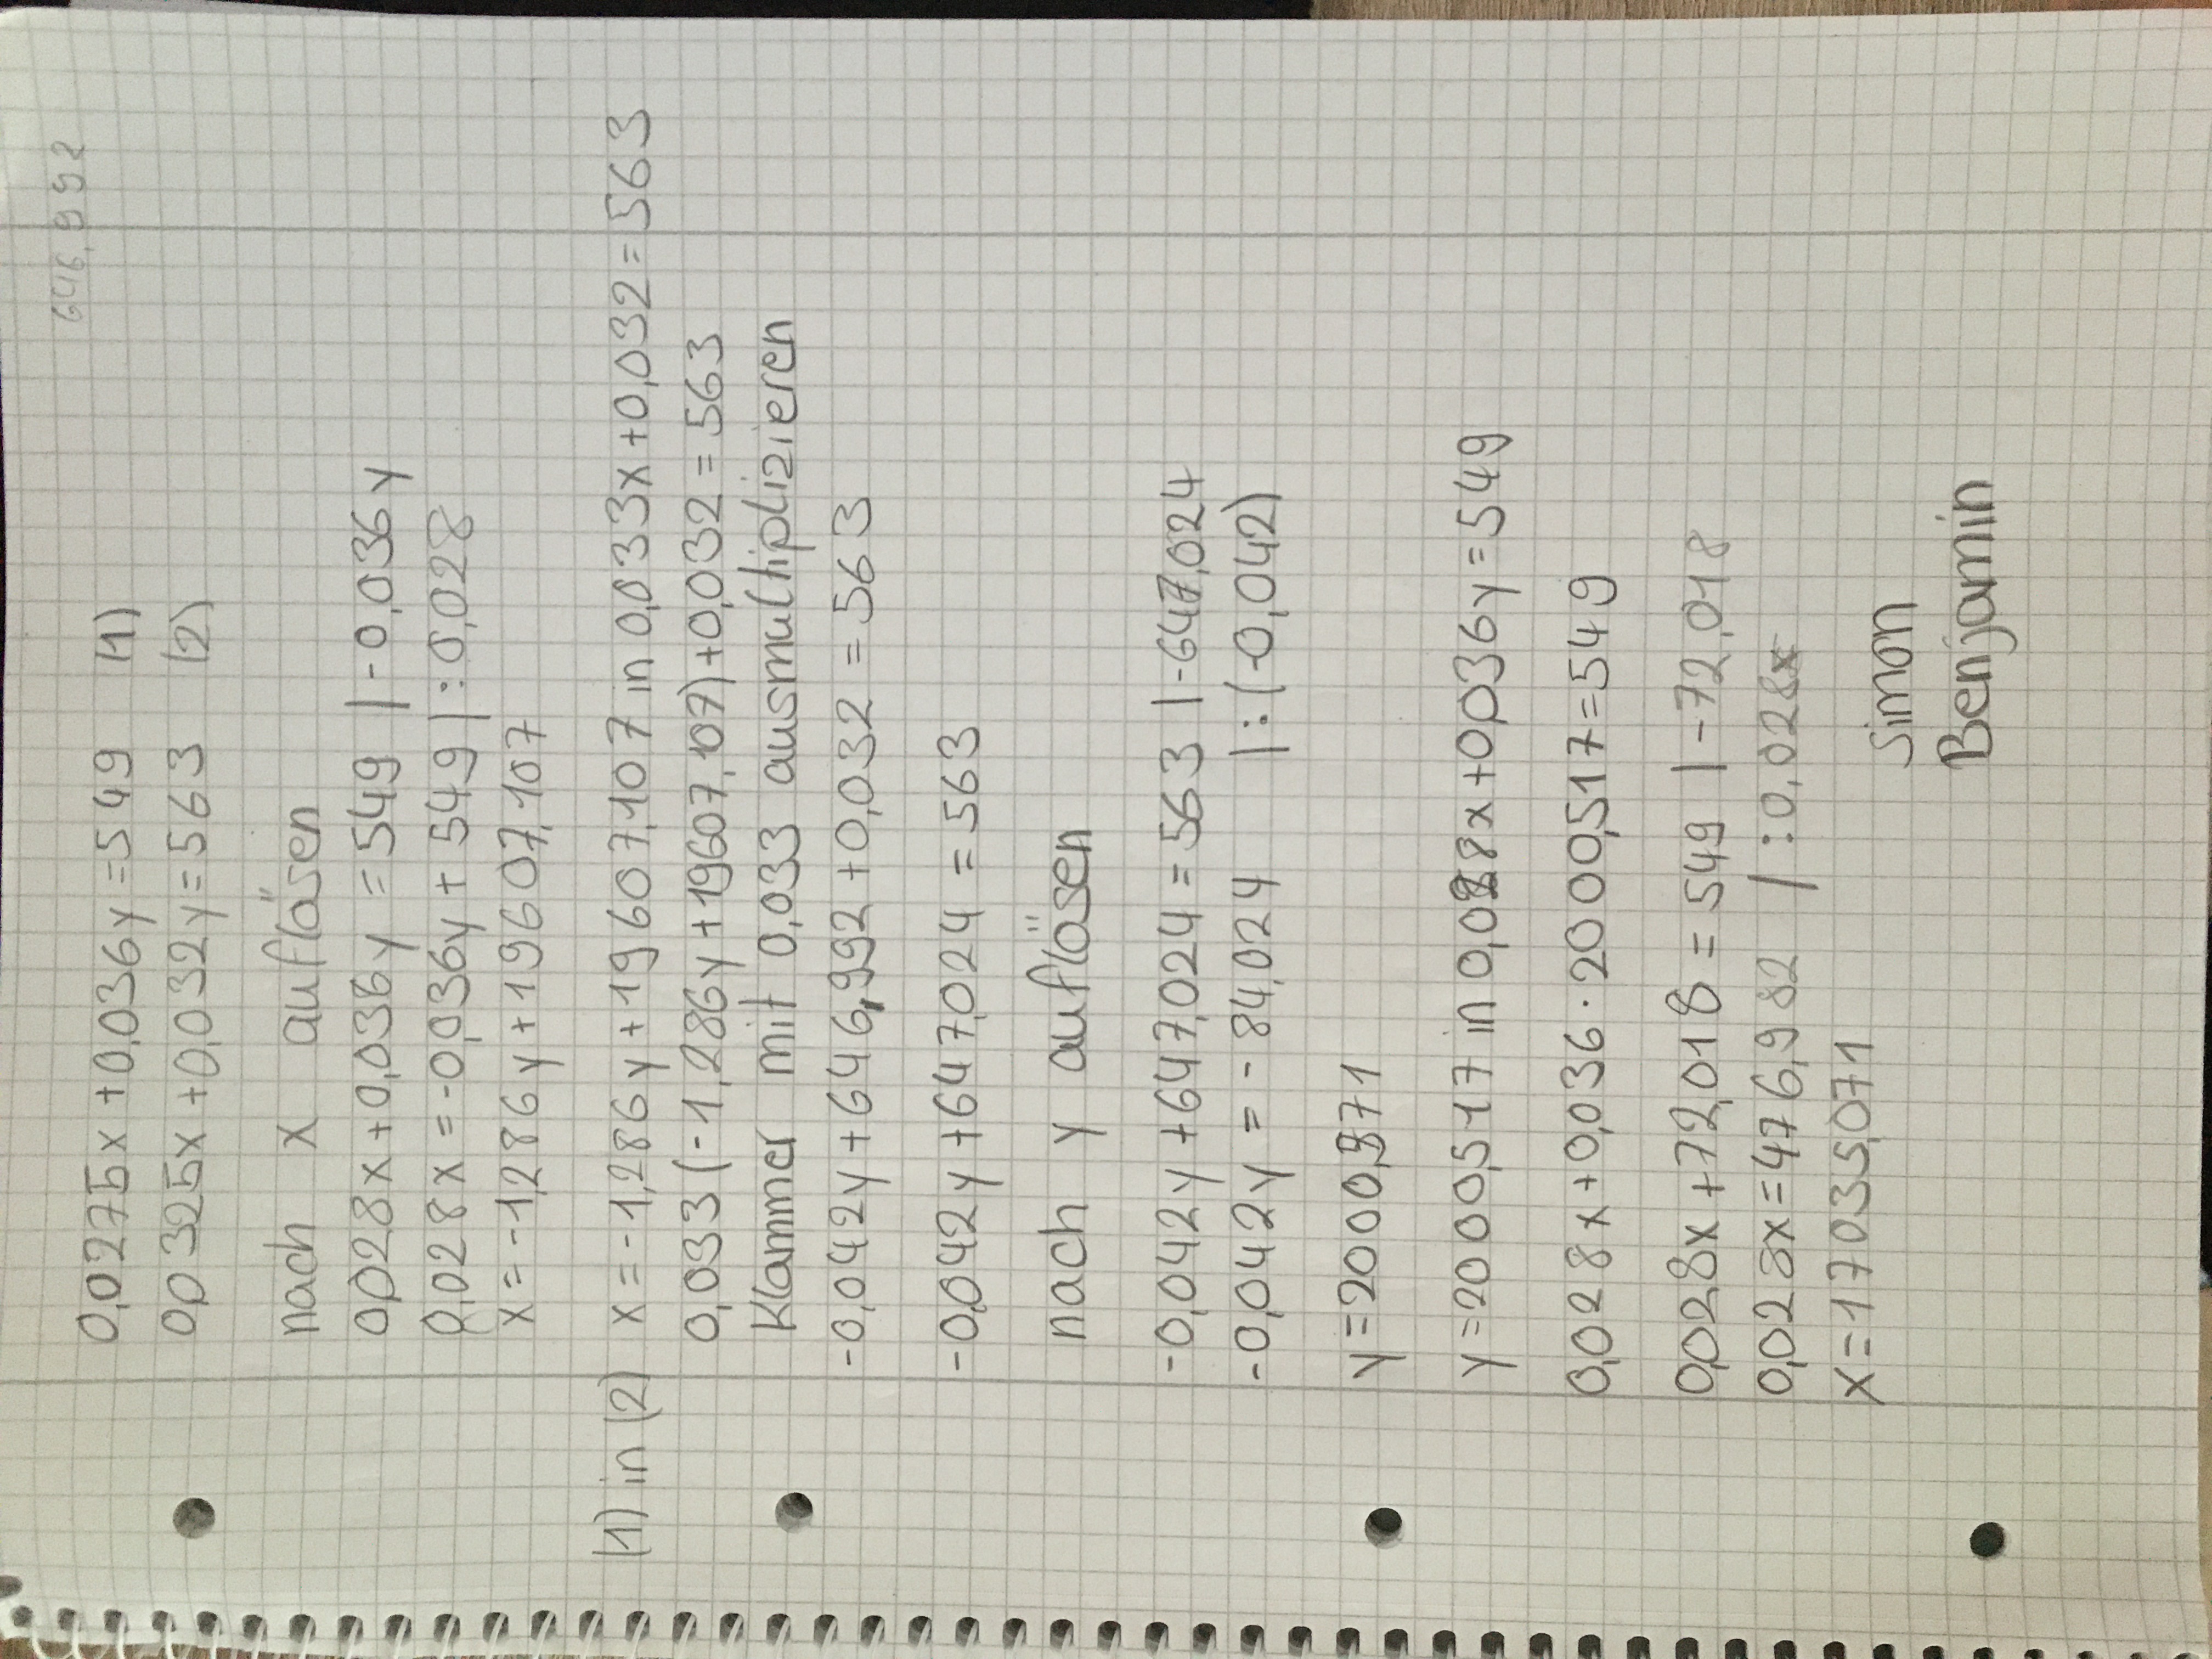 646,992
0,0275x+0,036y=549 (1)
0,0325x+0,032y=563 (2)
nach x auflösen
0,028x+0,036y=549 |-0,036y
0,028x=-0,036y+549 |:0,028
x=-1,286y+19607,107
(1) in (2) x=-1,286y+19607,107 in 0,033x+0,032=563
0,033(-1,286y+19607,107)+0,032=563
Klammer mit 0,033 ausmultiplizieren
-0,042y+646,992+0,032=563
-0,042y+647,024=563
nach y auflösen
-0,042y+647,024=563 |-647,024
-0,042y=-84,024 |:(-0,042)
y=2000,571
y=2000,517 in 0,028x+0,036y=549
0,028x+0,036·2000,517=549
0,028x+72,018=549 |-72,018
0,028x=476,982 |:0,028x
x=17035,071
Simon
Benjamin